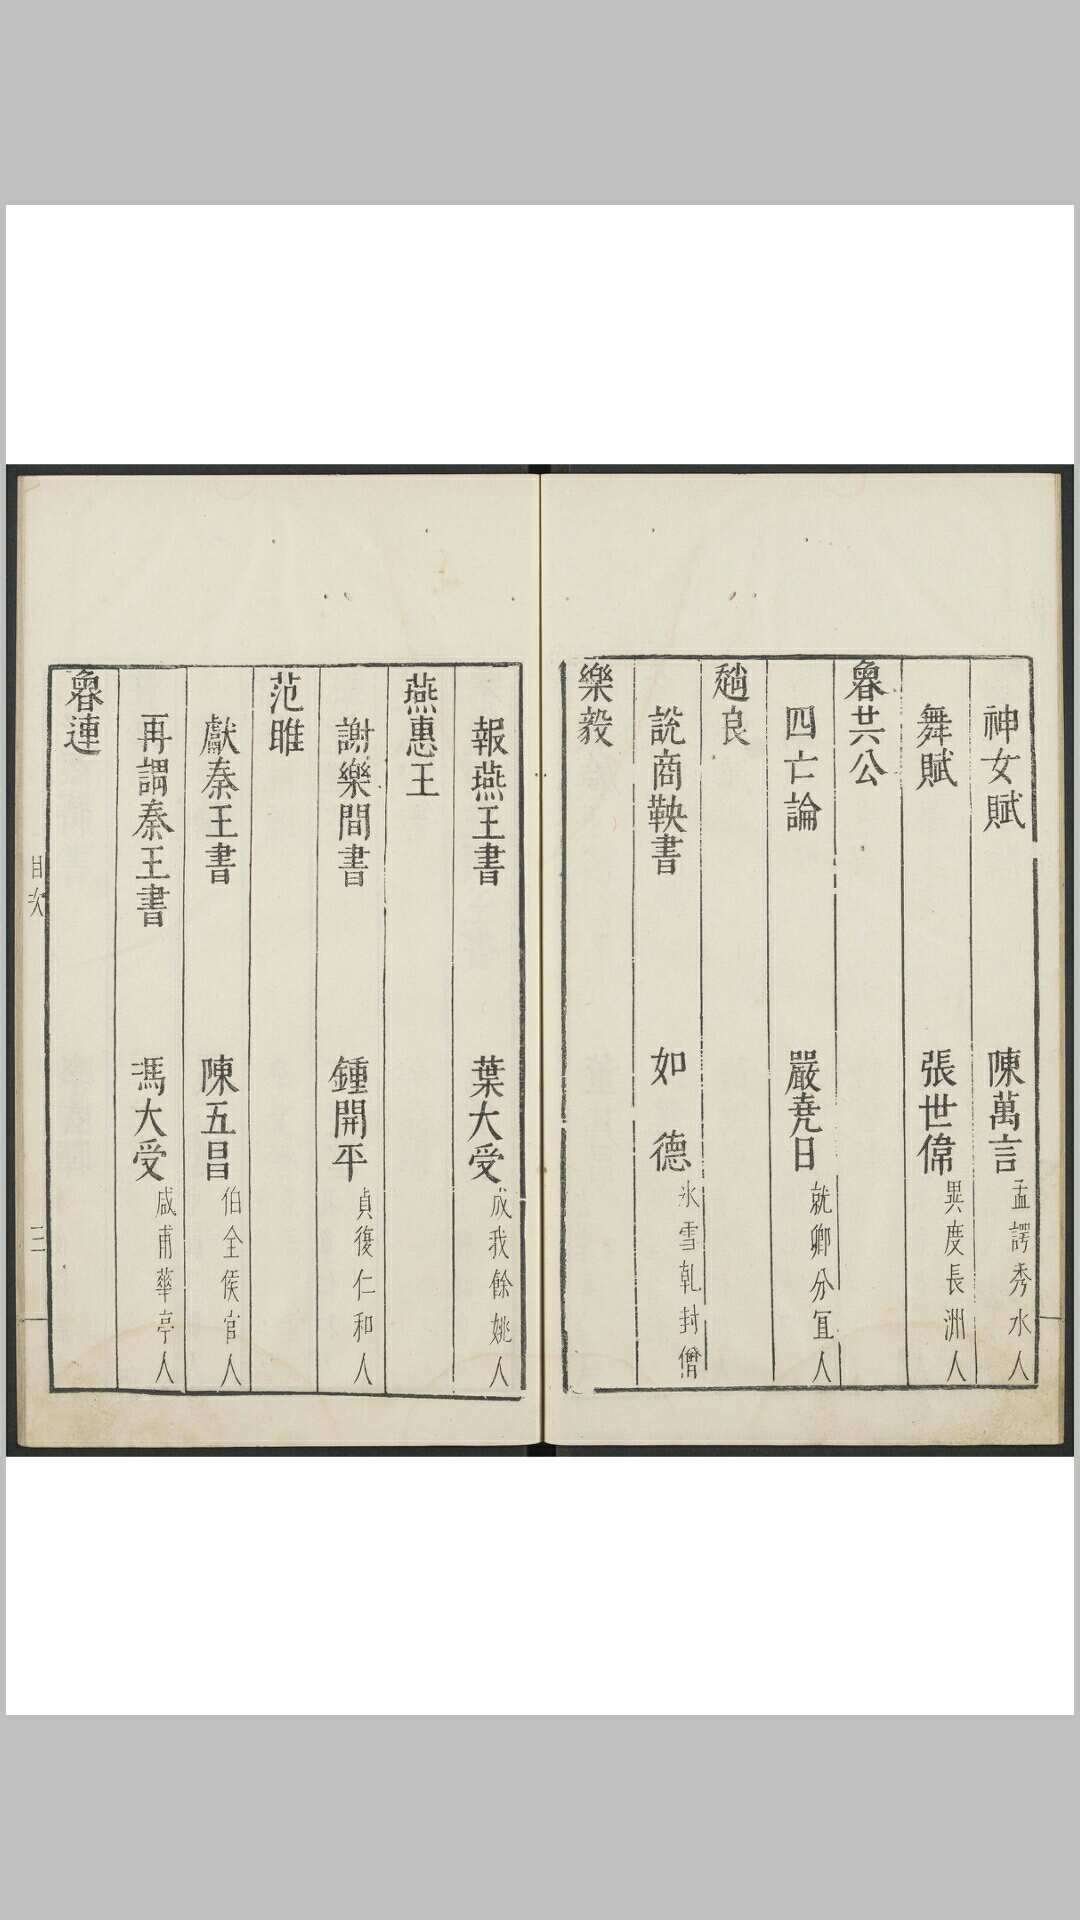 神女賦　陳萬言 孟諤秀水人
舞賦　張世偉 異度長洲人
魯共公
四亡論　嚴堯日 就卿分宜人
趙良
說商鞅書　如德 氷雪乾封僧
樂毅
報燕王書　葉大受 成我餘姚人
燕惠王
謝樂間書　鍾開平 貞復仁和人
范睢
獻秦王書　陳五昌 伯全侯官人
再謂秦王書　馮大受 咸甫華亭人
魯連
目次
三